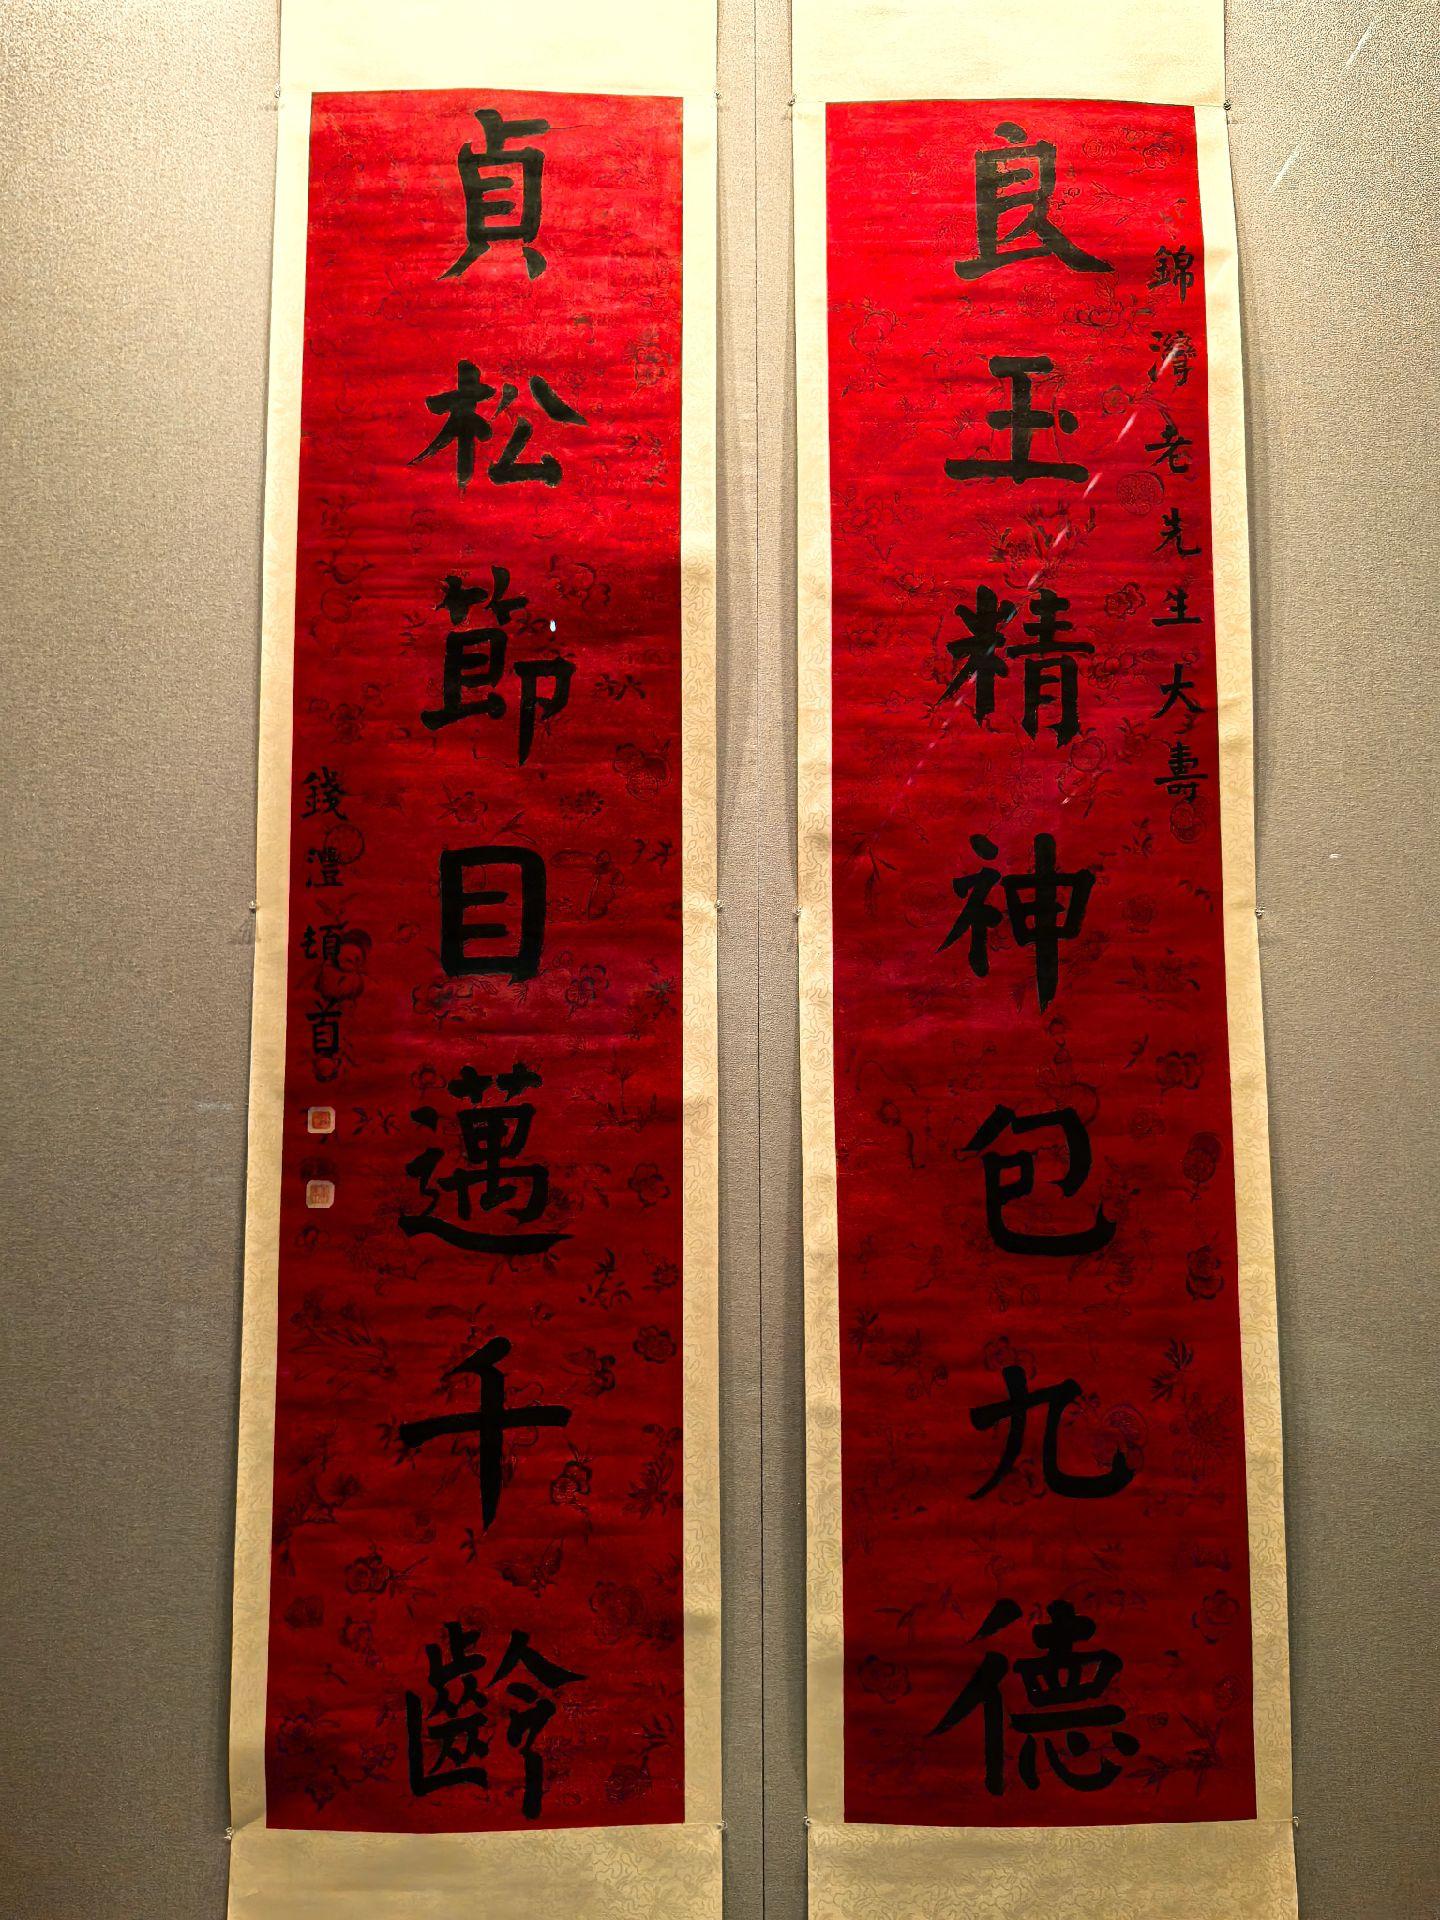 錦灣老先生大壽
良玉精神包九德
貞松節目邁千齡
錢灃頓首